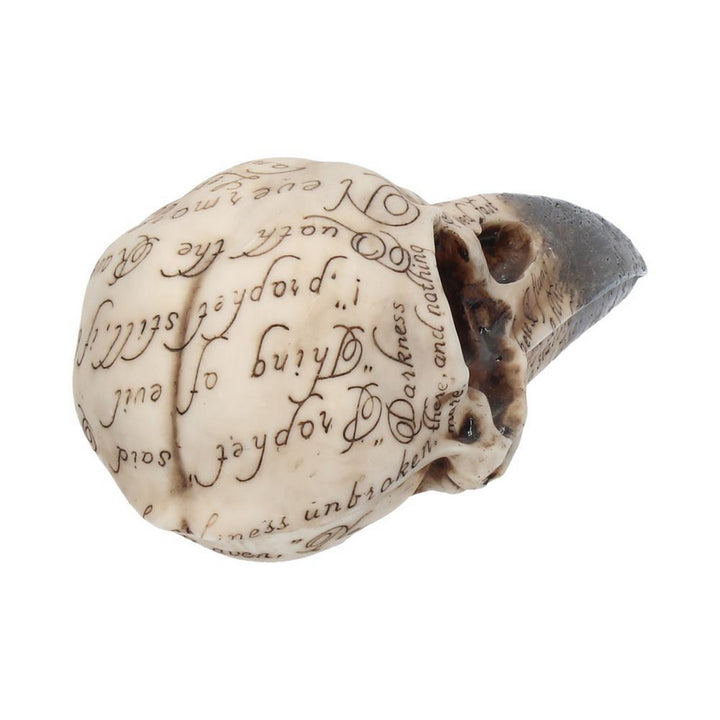 "Prophet" said
"Thing of evil
! "prophet still, if
Quoth the Rav
Nevermo
"Darkness
there, and nothing
more
iness unbroken,
aven,